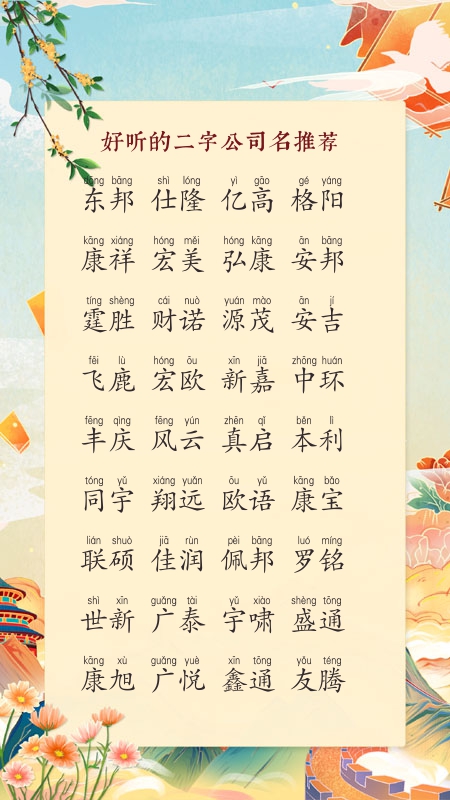 好听的二字公司名推荐
dōng bāng shì lóng yì gāo gé yáng
东邦 仕隆 亿高 格阳
kāng xiáng hóng měi hóng kāng ān bāng
康祥 宏美 弘康 安邦
tíng shèng cái nuò yuán mào ān jí
霆胜 财诺 源茂 安吉
fēi lù hóng ōu xīn jiā zhōng huán
飞鹿 宏欧 新嘉 中环
fēng qìng fēng yún zhēn qǐ běn lì
丰庆 风云 真启 本利
tóng yǔ xiáng yuǎn ōu yǔ kāng bǎo
同宇 翔远 欧语 康宝
lián shuò jiā rùn pèi bāng luó míng
联硕 佳润 佩邦 罗铭
shì xīn guǎng tài yǔ xiào shèng tōng
世新 广泰 宇啸 盛通
kāng xù guǎng yuè xīn tōng yǒu téng
康旭 广悦 鑫通 友腾